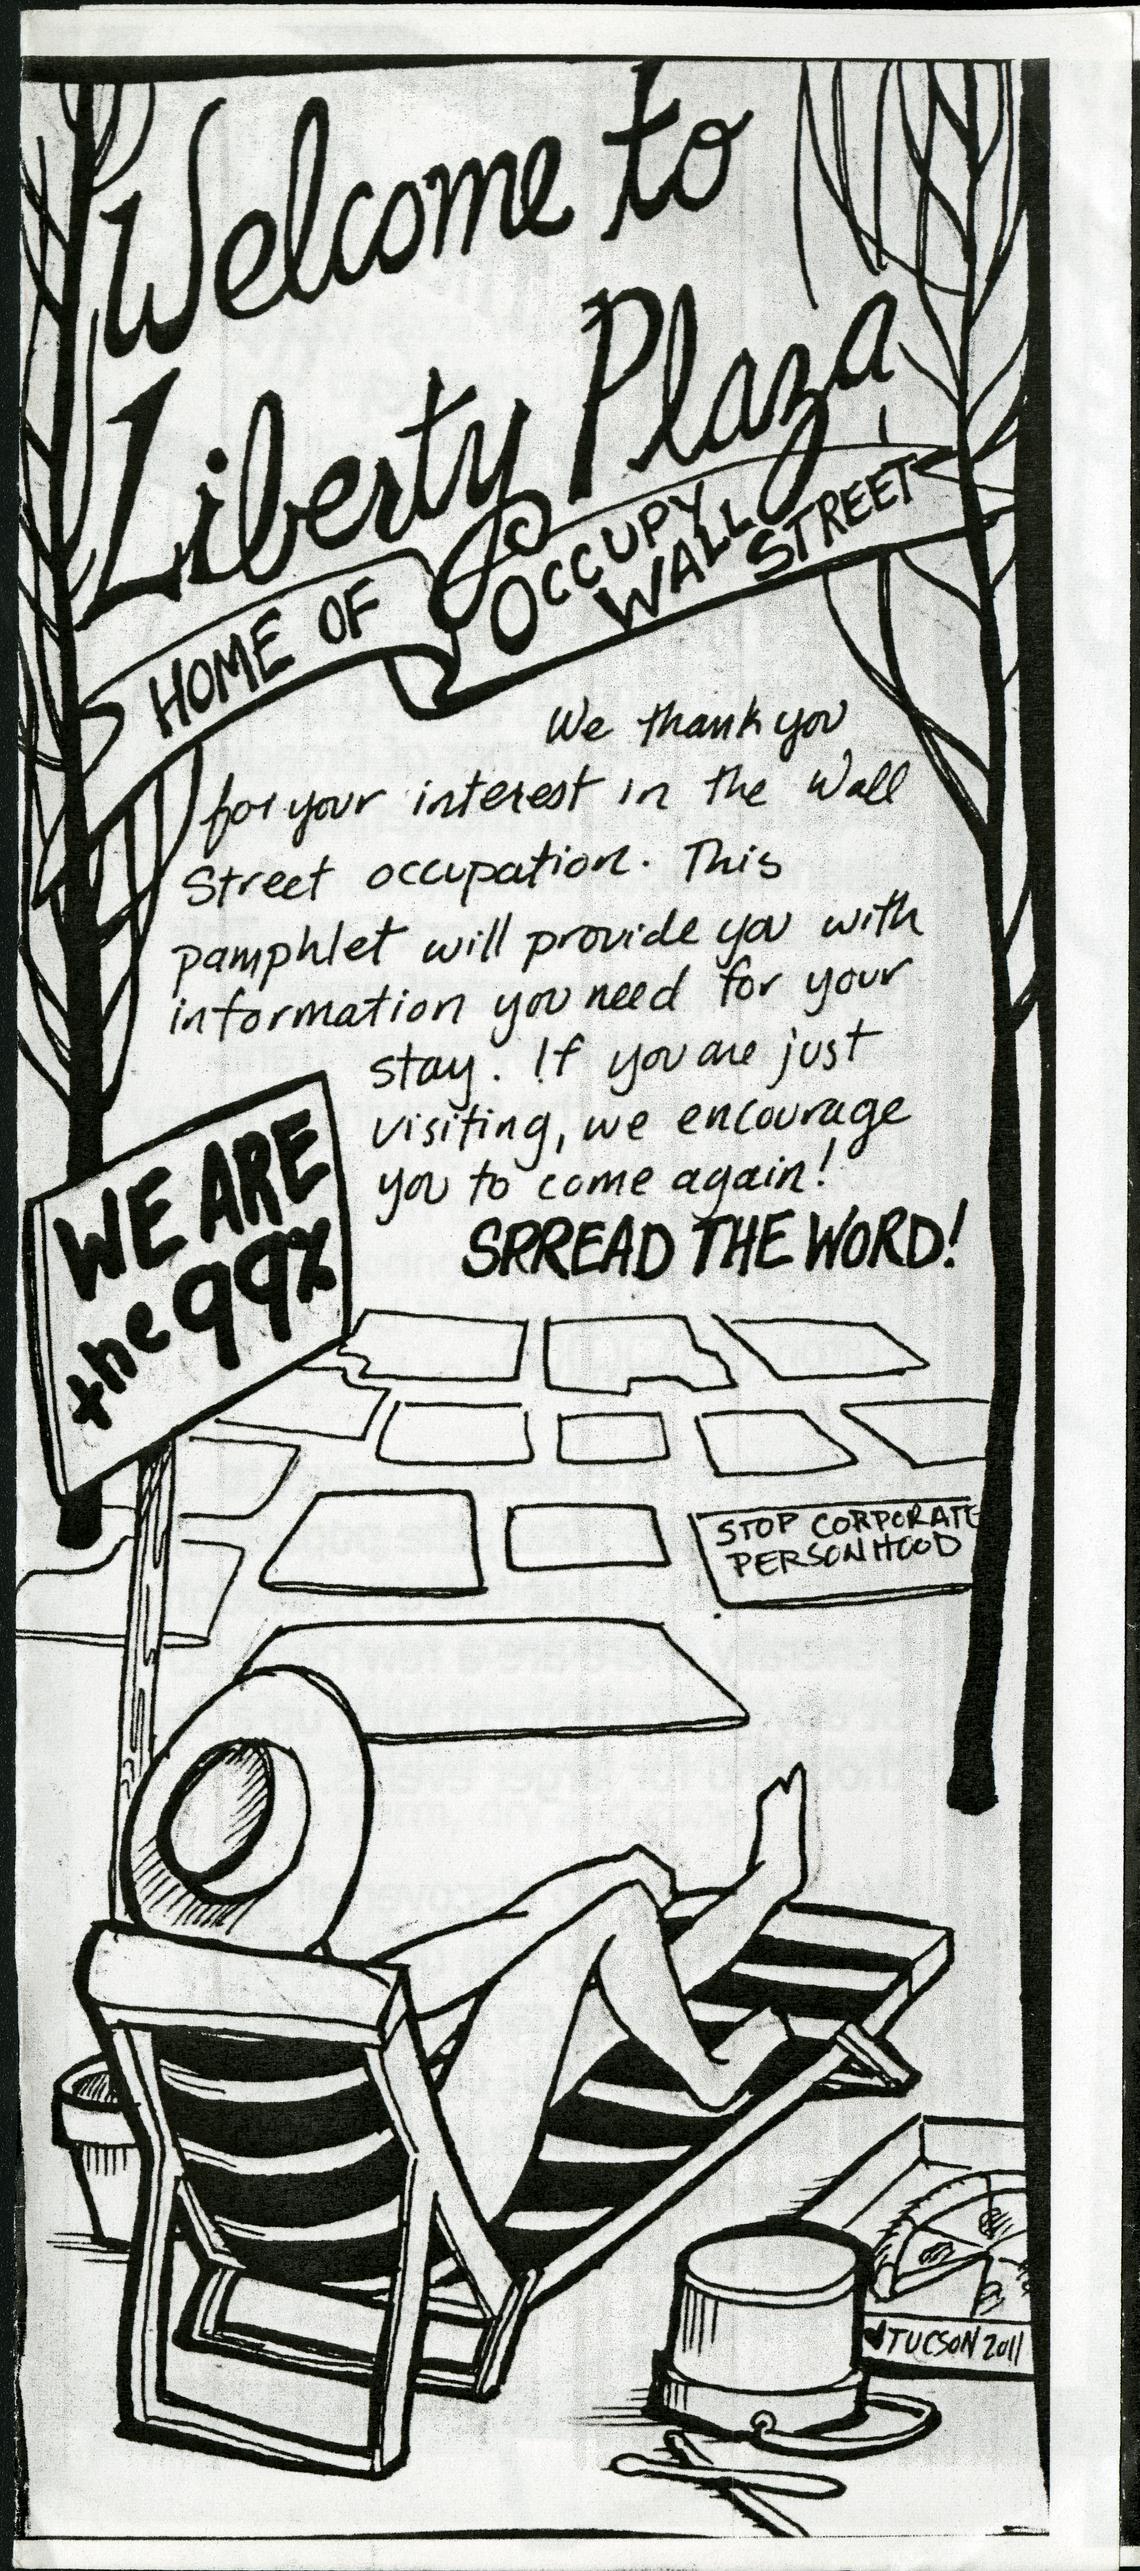 Welcome to
Liberty Plaza
HOME OF OCCUPY
WALL STREET
We thank you
for your interest in the Wall
Street occupation. This
pamphlet will provide you with
information you need for your
stay. If you are just
visiting, we encourage
you to come again!
SPREAD THE WORD!
WE ARE
the 99%
STOP CORPORATE
PERSONHOOD
♥TUCSON 2011